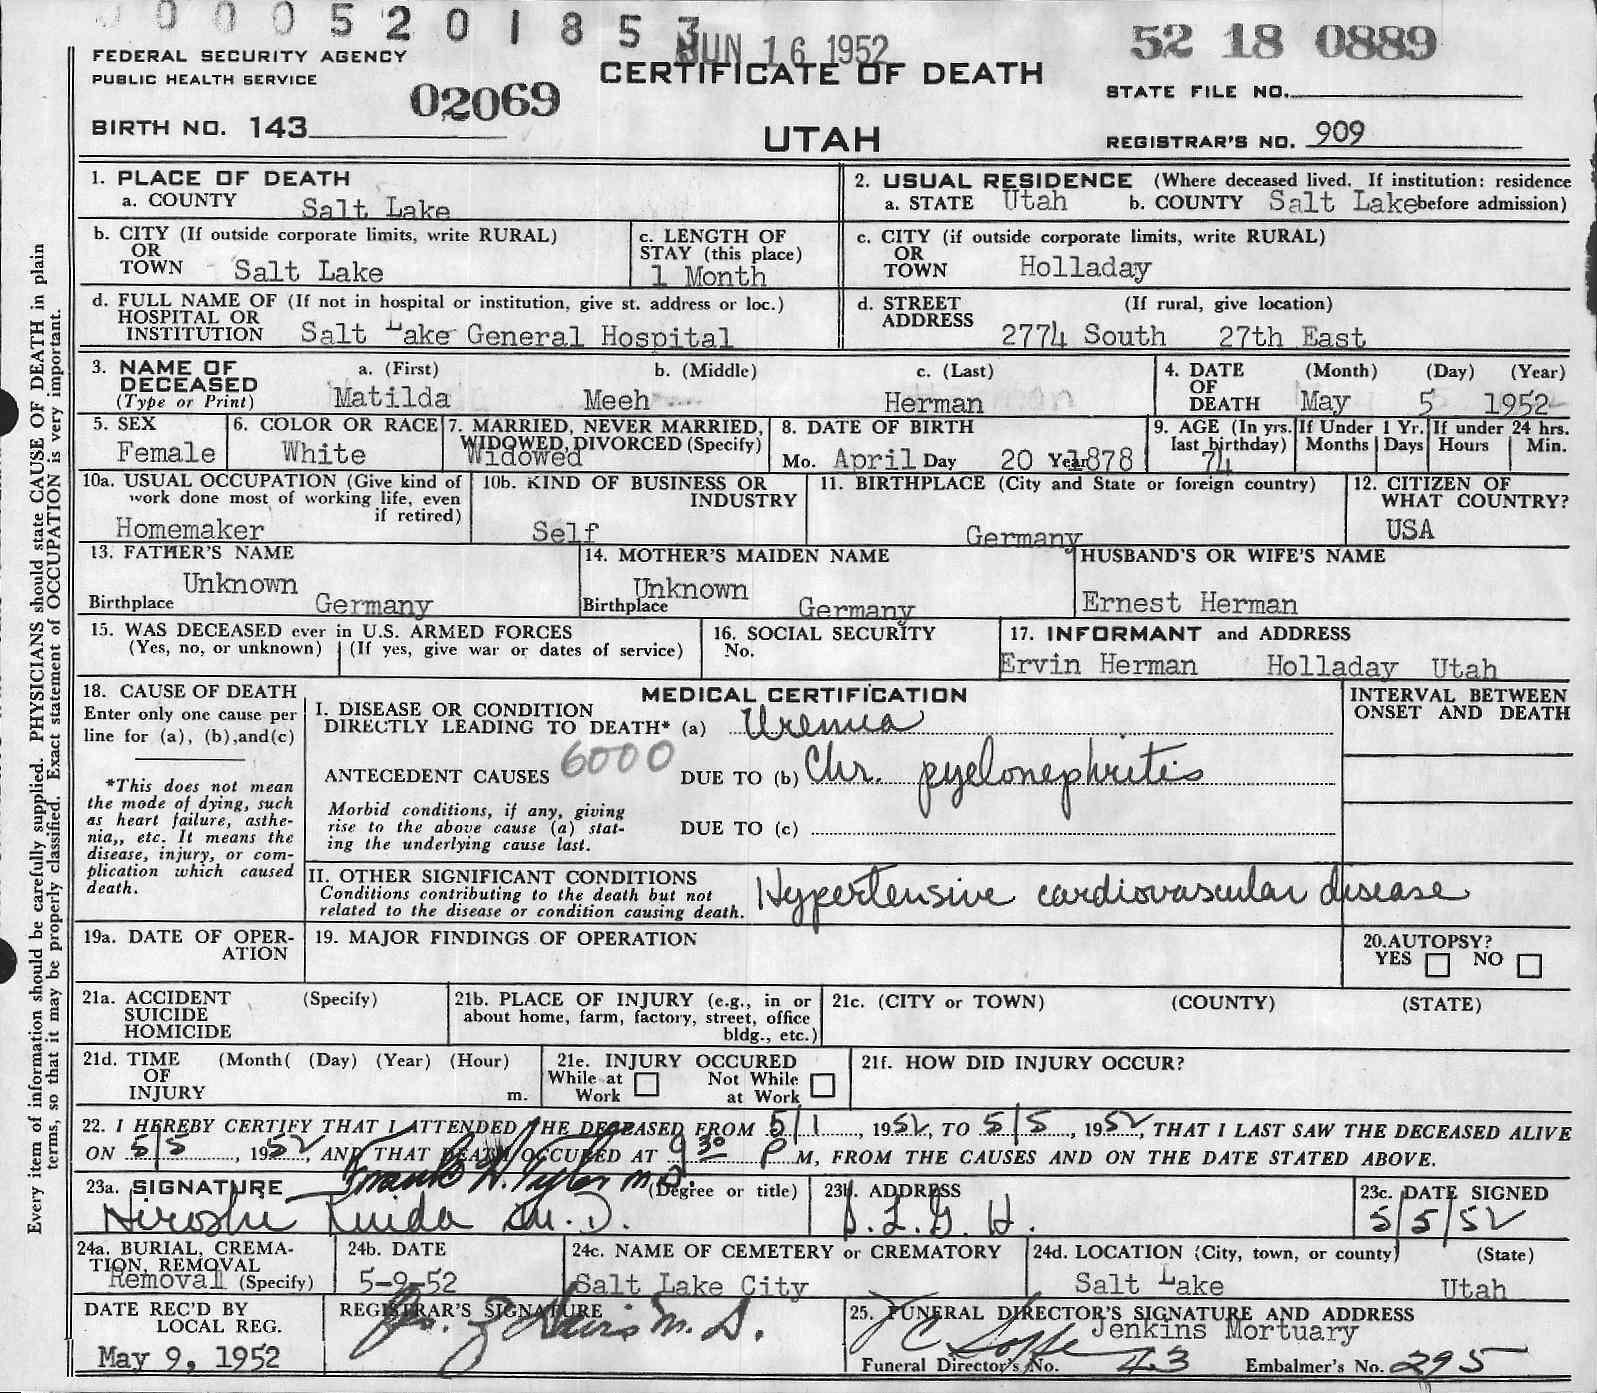 0 0 0 5 2 0 1 8 5 3
JUN 16 1952
52 18 0889
FEDERAL SECURITY AGENCY
PUBLIC HEALTH SERVICE
CERTIFICATE OF DEATH
STATE FILE NO.
02069
BIRTH NO. 143
UTAH
REGISTRAR'S NO. 909
Every item of information should be carefully supplied. PHYSICIANS should state CAUSE OF DEATH in plain
terms, so that it may be properly classified. Exact statement of OCCUPATION is very important.
1. PLACE OF DEATH
a. COUNTY Salt Lake
2. USUAL RESIDENCE (Where deceased lived. If institution: residence
a. STATE Utah b. COUNTY Salt Lake before admission)
b. CITY (If outside corporate limits, write RURAL)
OR
TOWN Salt Lake
c. LENGTH OF
STAY (this place)
1 Month
c. CITY (if outside corporate limits, write RURAL)
OR
TOWN Holladay
d. FULL NAME OF (If not in hospital or institution, give st. address or loc.)
HOSPITAL OR
INSTITUTION Salt Lake General Hospital
d. STREET (If rural, give location)
ADDRESS 2774 South 27th East
3. NAME OF a. (First) b. (Middle) c. (Last)
DECEASED
(Type or Print) Matilda Meeh Herman
4. DATE (Month) (Day) (Year)
OF
DEATH May 5 1952
5. SEX
Female
6. COLOR OR RACE
White
7. MARRIED, NEVER MARRIED,
WIDOWED, DIVORCED (Specify)
Widowed
8. DATE OF BIRTH
Mo. April Day 20 Year 1878
9. AGE (In yrs.
last birthday)
74
If Under 1 Yr.
Months Days
If under 24 hrs.
Hours Min.
10a. USUAL OCCUPATION (Give kind of
work done most of working life, even
if retired)
Homemaker
10b. KIND OF BUSINESS OR
INDUSTRY
Self
11. BIRTHPLACE (City and State or foreign country)
Germany
12. CITIZEN OF
WHAT COUNTRY?
USA
13. FATHER'S NAME
Unknown
Birthplace Germany
14. MOTHER'S MAIDEN NAME
Unknown
Birthplace Germany
HUSBAND'S OR WIFE'S NAME
Ernest Herman
15. WAS DECEASED ever in U.S. ARMED FORCES
(Yes, no, or unknown) (If yes, give war or dates of service)
16. SOCIAL SECURITY
No.
17. INFORMANT and ADDRESS
Ervin Herman Holladay Utah
18. CAUSE OF DEATH
Enter only one cause per
line for (a), (b),and(c)
*This does not mean
the mode of dying, such
as heart failure, asthe-
nia,, etc. It means the
disease, injury, or com-
plication which caused
death.
MEDICAL CERTIFICATION
I. DISEASE OR CONDITION
DIRECTLY LEADING TO DEATH* (a) Uremia
6000
ANTECEDENT CAUSES DUE TO (b) Chr. pyelonephritis
Morbid conditions, if any, giving
rise to the above cause (a) stat-
ing the underlying cause last.
DUE TO (c)
II. OTHER SIGNIFICANT CONDITIONS
Conditions contributing to the death but not
related to the disease or condition causing death.
Hypertensive cardiovascular disease
INTERVAL BETWEEN
ONSET AND DEATH
19a. DATE OF OPER-
ATION
19. MAJOR FINDINGS OF OPERATION
20.AUTOPSY?
YES NO
21a. ACCIDENT (Specify)
SUICIDE
HOMICIDE
21b. PLACE OF INJURY (e.g., in or
about home, farm, factory, street, office
bldg., etc.)
21c. (CITY or TOWN) (COUNTY) (STATE)
21d. TIME (Month( (Day) (Year) (Hour)
OF
INJURY m.
21e. INJURY OCCURED
While at
Work
Not While
at Work
21f. HOW DID INJURY OCCUR?
22. I HEREBY CERTIFY THAT I ATTENDED THE DECEASED FROM 5/1, 1952, TO 5/5, 1952, THAT I LAST SAW THE DECEASED ALIVE
ON 5/5, 1952, AND THAT DEATH OCCURED AT 9 30 P M, FROM THE CAUSES AND ON THE DATE STATED ABOVE.
Frank H. Tyler M.D.
23a. SIGNATURE (Degree or title)
Hiroshi Kuida M.D.
23b. ADDRESS
S.L.G.H.
23c. DATE SIGNED
5/5/52
24a. BURIAL, CREMA-
TION, REMOVAL
Removal (Specify)
24b. DATE
5-9-52
24c. NAME OF CEMETERY or CREMATORY
Salt Lake City
24d. LOCATION (City, town, or county) (State)
Salt Lake Utah
DATE REC'D BY
LOCAL REG.
May 9, 1952
REGISTRAR'S SIGNATURE
M.D.
25. FUNERAL DIRECTOR'S SIGNATURE AND ADDRESS
Jenkins Mortuary
Funeral Director's No. 43 Embalmer's No. 295